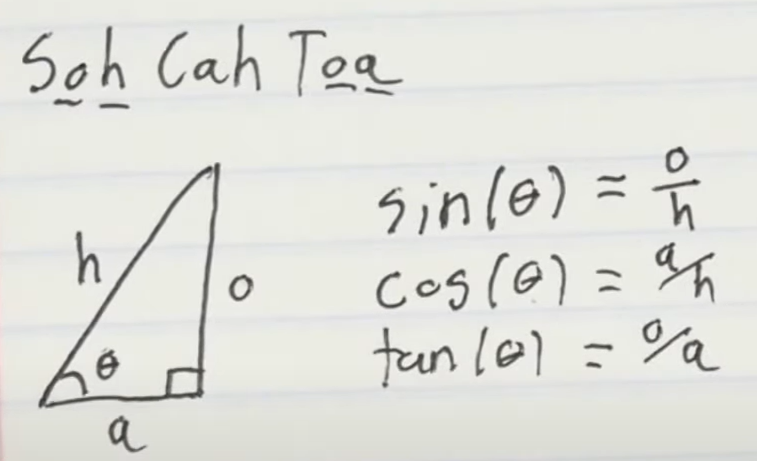 Soh Cah Toa
h
o
θ
a
sin(θ) = o/h
cos(θ) = a/h
tan(θ) = o/a